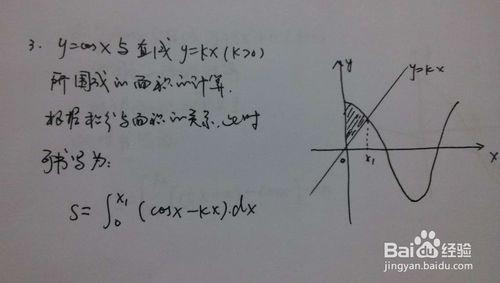 3. y=cosx与直线y=kx(k>0)
所围成的面积的计算.
根据积分与面积的关系,此时
可书写为:
S=∫₀^x₁(cosx-kx).dx
y
y=kx
o
x₁
x
Baidu经验
jingyan.baidu.com